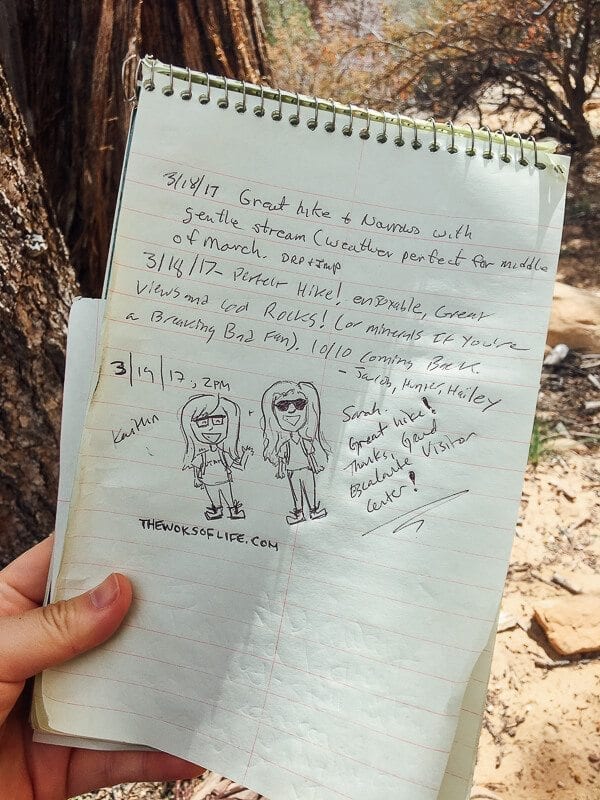 3/18/17 Great hike to Narrows with
gentle stream (weather perfect for middle
of March.
3/18/17- Perfect Hike! enjoyable, Great
views and cool Rocks! (or minerals If you're
a Breaking Bad Fan). 10/10 Coming Back.
- Jacob, Hunter, Hailey
3/19/17, 2PM
Kaitlin
Sarah.
Great hike!
Thanks, Grand
Escalante Visitor
Center!
THEWOKSOFLIFE.COM